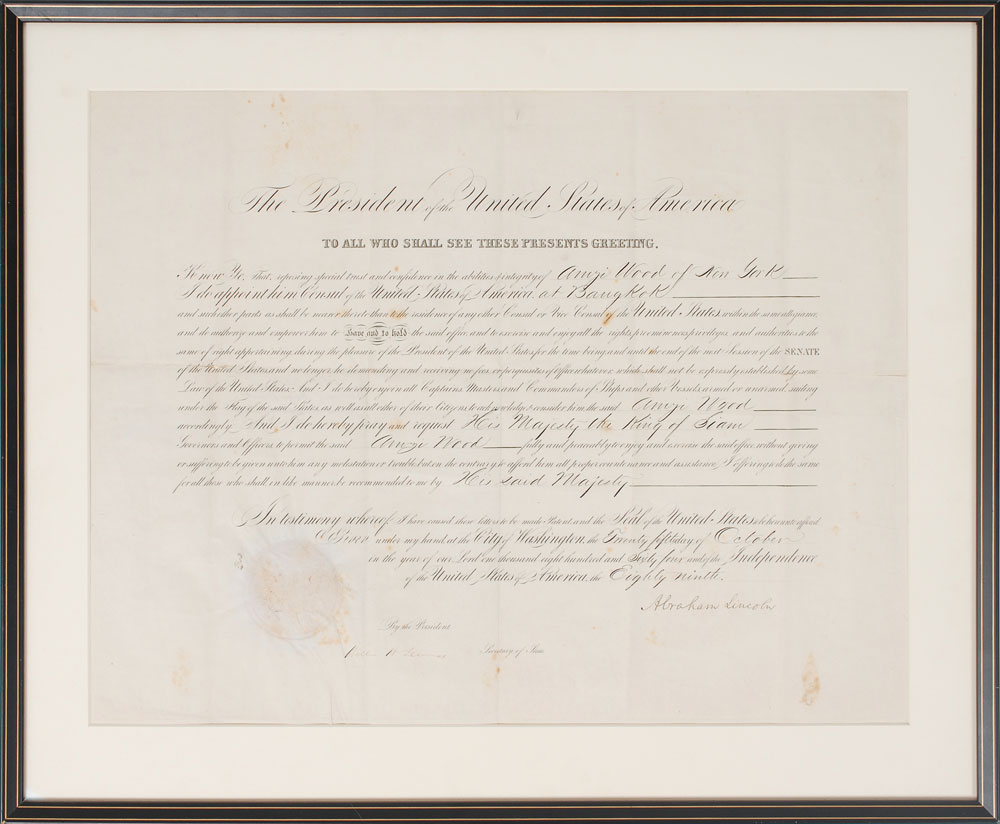 The President of the United States of America
TO ALL WHO SHALL SEE THESE PRESENTS GREETING.
Know Ye, That, reposing special trust and confidence in the abilities & integrity of Amzi Wood of New York
I do appoint him Consul of the United States of America at Bangkok
and such other parts as shall be nearer thereto than to the residence of any other Consul or Vice Consul of the United States within the same allegiance,
and do authorize and empower him to have and to hold the said office and to exercise and enjoy all the rights, preeminences, privileges, and authorities to the
same of right appertaining, during the pleasure of the President of the United States for the time being and until the end of the next Session of the SENATE
of the United States and no longer, he demanding and receiving no fees or perquisites of Office whatever, which shall not be expressly established by some
Law of the United States. And I do hereby enjoin all Captains, Masters and Commanders of Ships and other Vessels, armed or unarmed sailing
under the Flag of the said States, as well as all other of their Citizens to acknowledge & consider him the said Amzi Wood
accordingly. And I do hereby pray and request His Majesty the King of Siam
Governors and Officers to permit the said Amzi Wood fully and peaceably to enjoy and exercise the said office, without giving
or suffering to be given unto him any molestation or trouble, but on the contrary to afford him all proper countenance and assistance; I offering to do the same
for all those who shall in like manner be recommended to me by His said Majesty
In testimony whereof, I have caused these letters to be made Patent, and the Seal of the United States to be hereunto affixed
Given under my hand, at the City of Washington, the Twenty fifth day of October
in the year of our Lord one thousand eight hundred and Sixty four and of the Independence
of the United States of America, the Eighty ninth.
Abraham Lincoln
By the President
Secretary of State